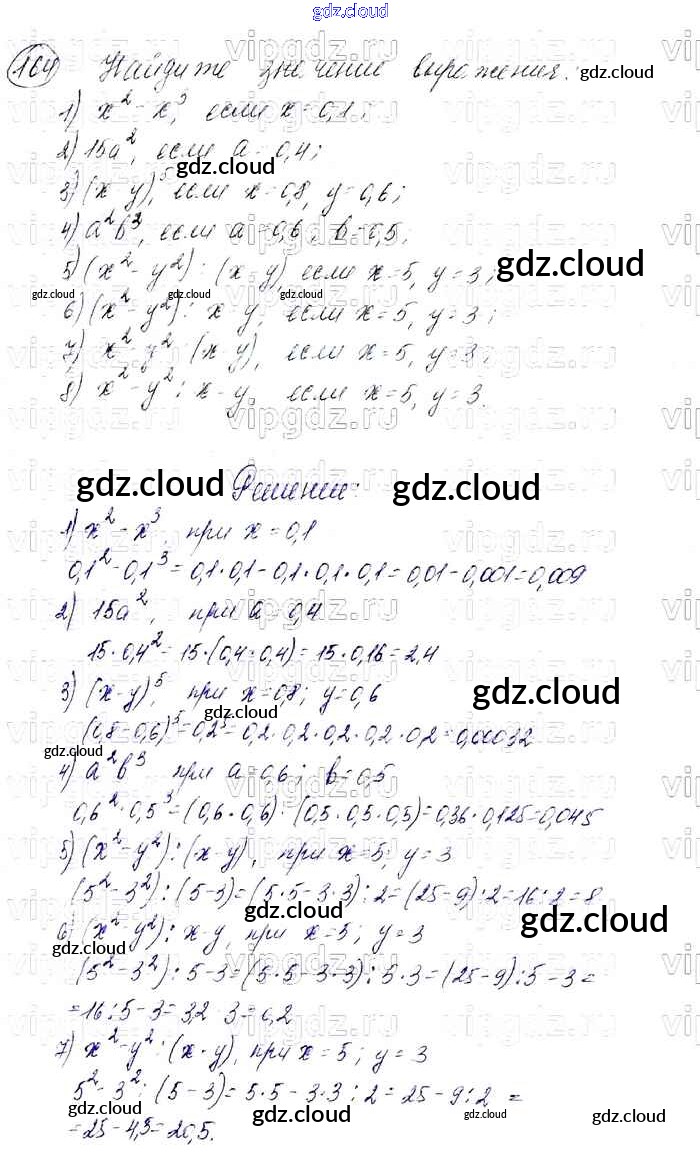 gdz.cloud
164 Найдите значение выражения: gdz.cloud
1) x² - x³, если x = 0,1;
2) 15a², если a = 0,4;
gdz.cloud
3) (x - y)⁵, если x = 0,8, y = 0,6;
4) a²b³, если a = 0,6, b = 0,5;
5) (x² - y²) : (x - y), если x = 5, y = 3; gdz.cloud
gdz.cloud gdz.cloud gdz.cloud
6) (x² - y²) : x - y, если x = 5, y = 3;
7) x² - y² : (x - y), если x = 5, y = 3;
8) x² - y² : x - y, если x = 5, y = 3.
gdz.cloud Решение: gdz.cloud
1) x² - x³, при x = 0,1
0,1² - 0,1³ = 0,1 · 0,1 - 0,1 · 0,1 · 0,1 = 0,01 - 0,001 = 0,009
2) 15a², при a = 0,4
15 · 0,4² = 15 · (0,4 · 0,4) = 15 · 0,16 = 2,4
3) (x - y)⁵, при x = 0,8; y = 0,6 gdz.cloud
gdz.cloud
(0,8 - 0,6)⁵ = 0,2⁵ = 0,2 · 0,2 · 0,2 · 0,2 · 0,2 = 0,00032
gdz.cloud
4) a²b³ при a = 0,6; b = 0,5
0,6² · 0,5³ = (0,6 · 0,6) · (0,5 · 0,5 · 0,5) = 0,36 · 0,125 = 0,045
5) (x² - y²) : (x - y), при x = 5; y = 3
(5² - 3²) : (5 - 3) = (5 · 5 - 3 · 3) : 2 = (25 - 9) : 2 = 16 : 2 = 8
gdz.cloud gdz.cloud
6) (x² - y²) : x - y, при x = 5; y = 3
gdz.cloud
(5² - 3²) : 5 - 3 = (5 · 5 - 3 · 3) : 5 - 3 = (25 - 9) : 5 - 3 =
= 16 : 5 - 3 = 3,2 - 3 = 0,2
7) x² - y² : (x - y), при x = 5; y = 3
5² - 3² : (5 - 3) = 5 · 5 - 3 · 3 : 2 = 25 - 9 : 2 =
gdz.cloud gdz.cloud gdz.cloud gdz.cloud
= 25 - 4,5 = 20,5.